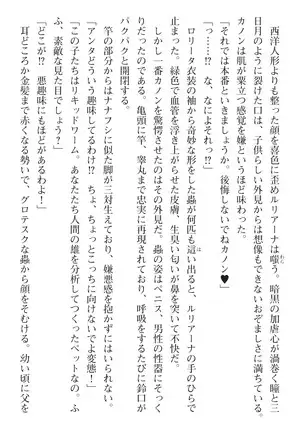 西洋人形よりも整った顔を喜色に歪めルリアーナは嗤う。暗黒の加虐心が渦巻く瞳と三
日月のように裂けた口は、子供らしい外見からは想像もできないおぞましさに満ちている。
カノンは肌が粟立つ感覚を嫌というほど味わった。
「それでは本番といきましょうか。後悔しないでねカノン♥」
「っ……!? な、なによそれっ!?」
ロリータ衣装の袖から奇妙な形をした蟲が何匹も這い出ると、ルリアーナの手のひらで
止まった。緑色で血管を浮き上がらせた皮膚、生臭い匂いが鼻を突いて不快だ。
しかし一番カノンを驚愕させたのはその外見だ。蟲の姿はペニス、男性の性器にそっく
りだったのである。亀頭に竿、睾丸まで忠実に再現されており、呼吸をするたびに鈴口が
パクパクと開閉する。
竿の部分からはナナフシに似た脚が三対生えており、嫌悪感を抱かずにはいられない。
「アンタどういう趣味してるわけ!? ちょ、ちょっとこっちに向けないでよ変態!」
「この子たちはリキッドワーム。あなたたち人間の雄を分析してつくったペットなの。ふ
ふ、素敵な見た目でしょう?」
「どこが!? 悪趣味にもほどがあるわよ!」
耳どころか金髪まで赤くなる勢いで、グロテスクな蟲から顔をそむける。幼い頃に父を